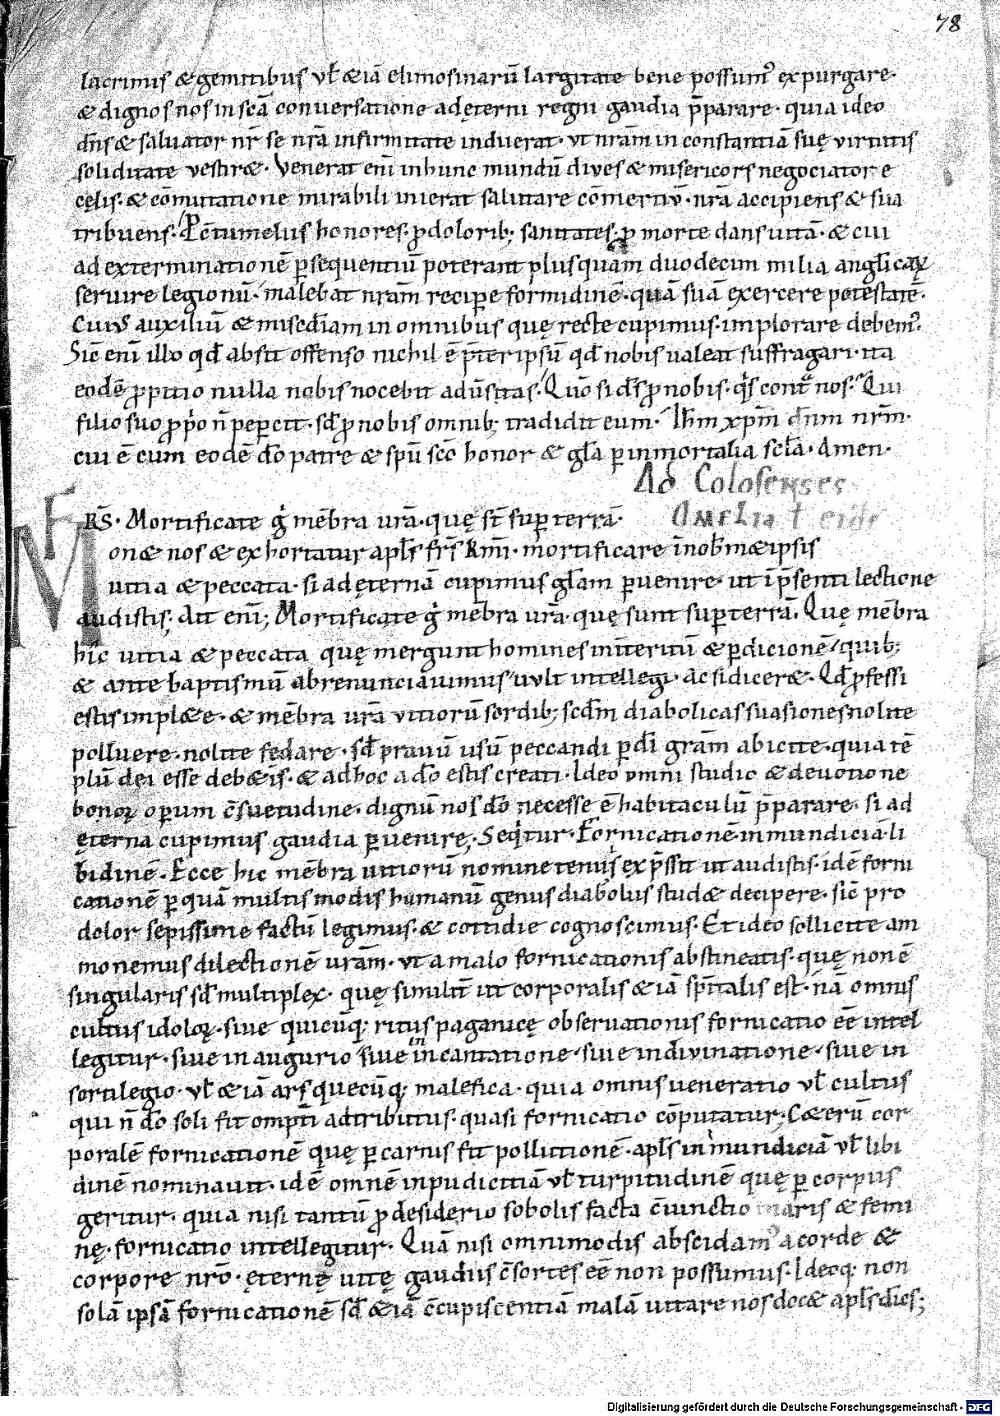 78
lacrimis & gemitibus vl̄ &iā elimosinarū largitate bene possum' expurgare·
& dignos nos in scā conuersatione ad ęterni regni gaudia p̄parare· quia ideo
dn̄s & saluator nr̄ se nr̄a infirmitate induerat· vt nrām in constantiā suę virtutis
soliditate vestir&· Venerat eni in hunc mundū diues & misericors negociator e
cęlis· & cōmutatione mirabili inierat salutare cōmertiū· nrā accipiens & sua
tribuens· P c̄tumelius honores· p dolorib; sanitates· p morte dans uitā· & cui
ad exterminationē psequentiū poterant plus quam duodecim milia anglicaꝝ
seruire legionū· malebat nrām recipe formidinē· quā suā exercere potestatē·
Cui' auxiliū & misc̄diam in omnibus quę recte cupimus· implorare debem'·
Sic̄ eni illo qd̄ absit offenso nichil ē p̄ter ipsū qd̄ nobis ualeat suffragari· ita
eodē ppitio nulla nobis nocebit aduersitas· Quō si ds̄ p nobis· q̄s cont nos· Qui
filio suo pp̓o n̄ pepercit· sd̄ p nobis omnib; tradidit eum· Ihm xp̄m dn̄m nrm̄·
cui ē cum eodē dō patre & sp̄u scō honor & gl̄a p inmortalia scl̄a· Amen·
Ad Colosenses
FRS̄· Mortificate g̓ mēbra urā· quę st̄ sup terrā·
Mon& nos & exhortatur apl̄s fr̄s k̄mi· mortificare in nob̄ m&ipsis
uitia & peccata· si ad ęternā cupimus gl̄am peruenire· ut in p̄senti lectione
audistis; Ait eni; Mortificate g̓ mēbra urā· quę sunt sup terrā· Quę mēbra
hic uitia & peccata quę mergunt homines in interitū & perdicionē· quib;
& ante baptismū abrenunciauimus· uult intellegi· Ac si dicer&· Qd̄ pfessi
estis impl&e· & mēbra urā vitiorū sordib; scdm̄ diabolicas suasiones nolite
polluere· nolite fędare· sd̄ prauū usū peccandi p dī grām abicite· quia tē
plū dei esse deb&is· & ad hoc a dō estis creati· Ideo omni studio & deuotione
bonoꝝ operum c̄suetudine· dignū nos dō necesse ē habitaculū p̄parare· si ad
ęterna cupimus gaudia peruenire; Seq̄tur· Fornicationē inmundiciā li
bidinē· Ecce hic mēbra uitiorū nomine tenus exp̄ssit ut audistis· idē forni
cationē p quā multis modis humanū genus diabolus stud& decipere· sic̄ pro
dolor sępissime factū legimus· & cottidie cognoscimus· Et ideo sollicite am
monemus dilectionē urām· vt a malo fornicationis abstineatis· quę non ē
singularis sd̄ multiplex· quę similit̄ ut corporalis &iā sp̄italis est· nā omnis
cultus idoloꝝ· siue quicūq; ritus paganicę obseruationis fornicatio eē intel
legitur· siue in augurio siue in incantatione· siue in diuinatione· siue in
sortilegio· vl̄ &iā ars quecūq; malefica· quia omnis ueneratio vl̄ cultus
qui n̄ dō soli fit ompti adtributus· quasi fornicatio cōputatur; C&erū cor
poralē fornicationē quę p carnis fit pollutionē· apl̄s inmundiciā vl̄ libi
dinē nominauit· idē omnē inpudicitiā vl̄ turpitudinē quę p corpus
geritur· quia nisi tantū p desiderio sobolis facta c̄iunctio maris & femi
nę· fornicatio intellegitur· Quā nisi omnimodis abscidam' a corde &
corpore nrō· ęternę uitę gaudiis c̄sortes eē non possumus· Ideoq; non
solā ipsā fornicationē sd̄ &iā c̄cupiscentiā malā uitare nos doc& apl̄s dices;
Digitalisierung gefördert durch die Deutsche Forschungsgemeinschaft - DFG